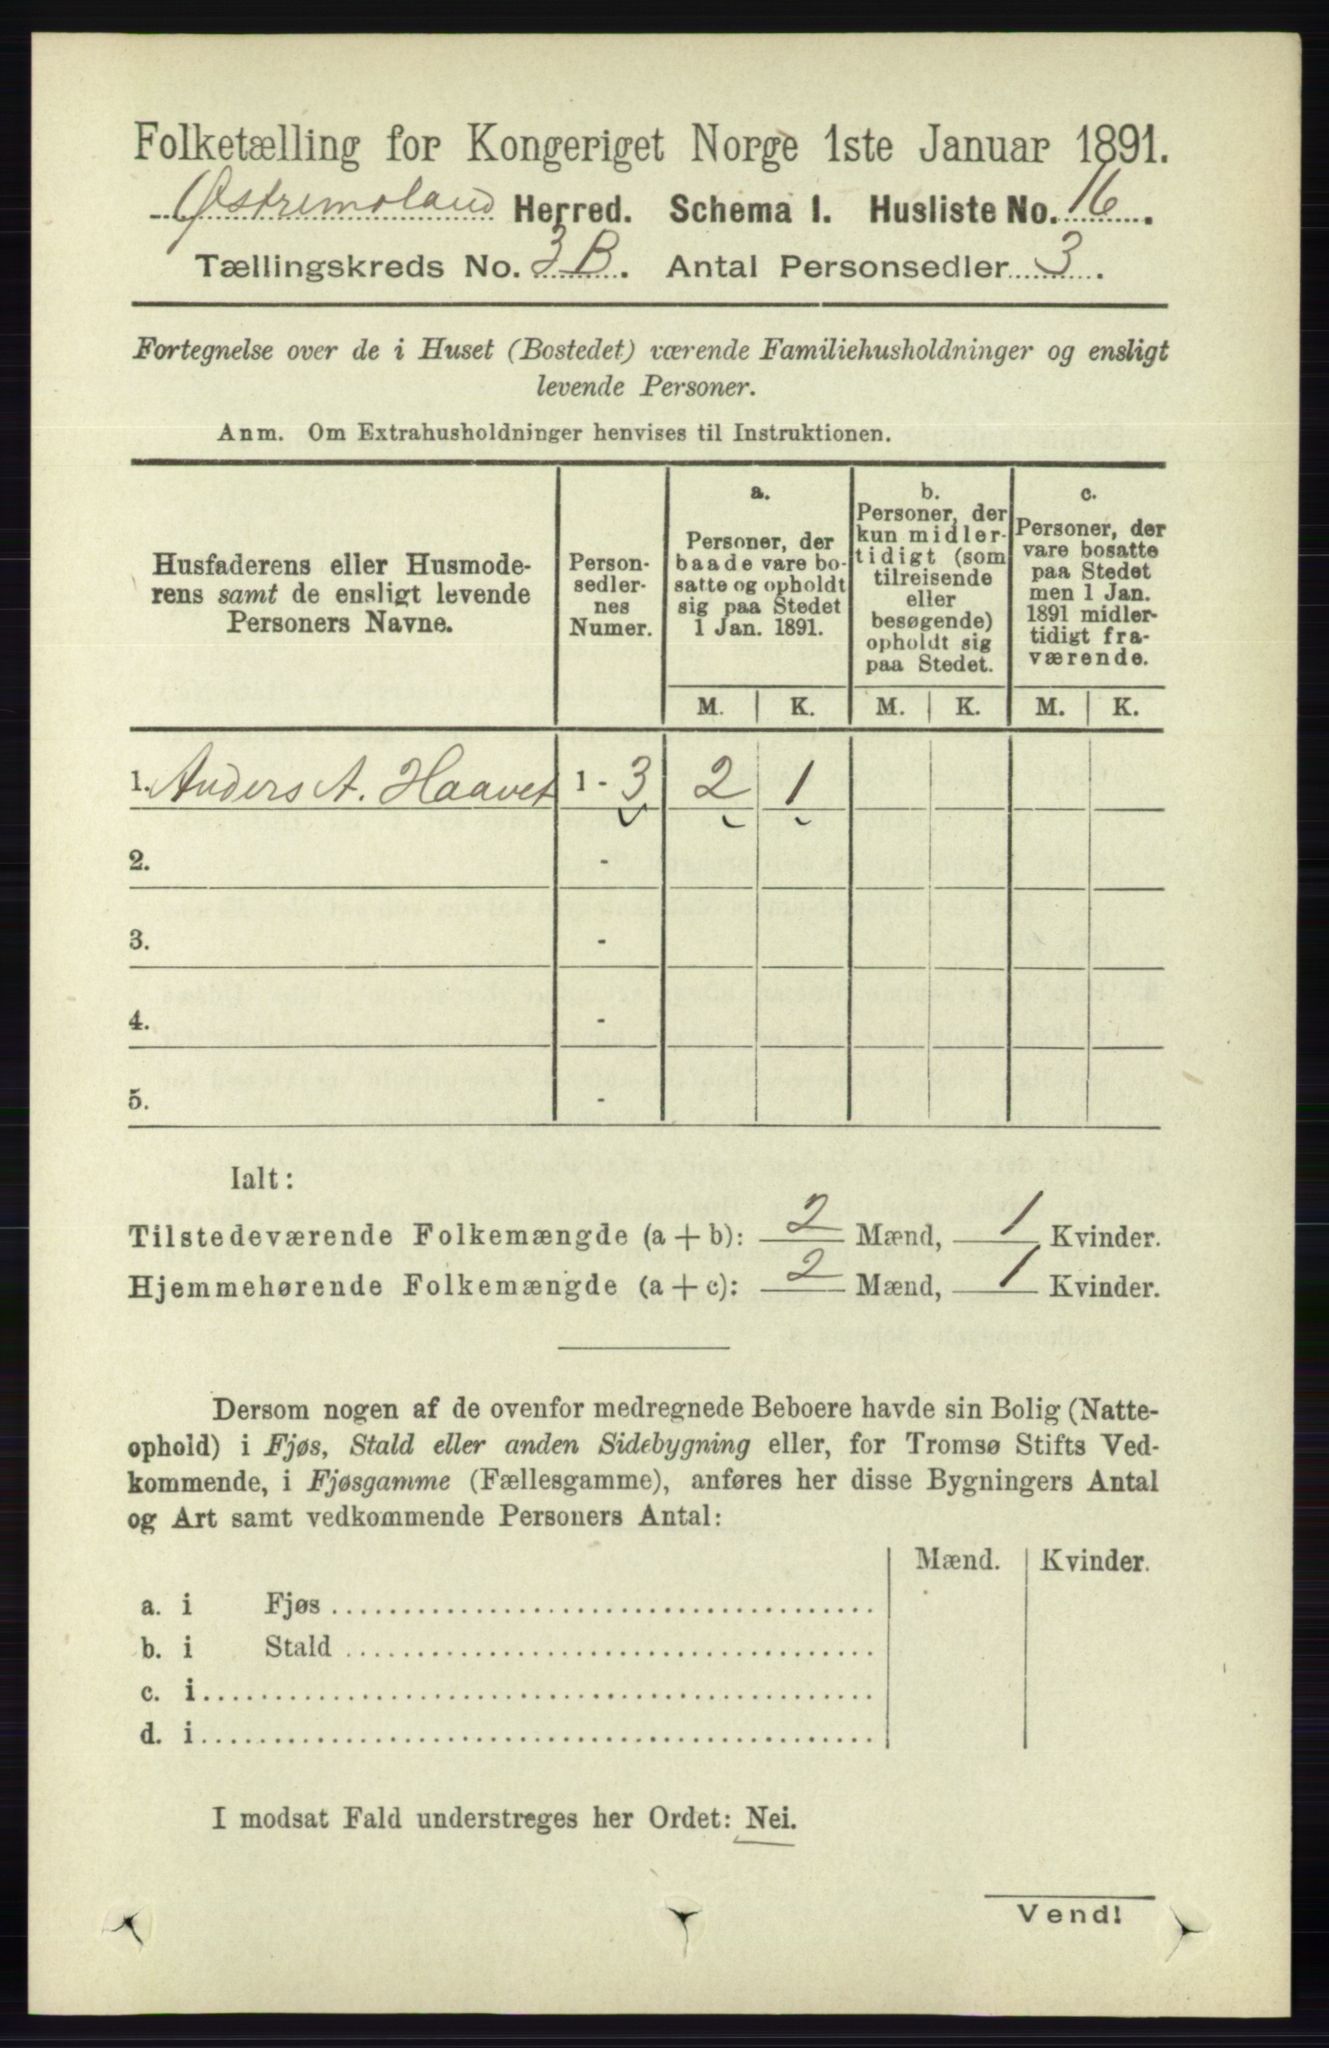 Folketælling for Kongeriget Norge 1ste Januar 1891.
Østremoland Herred. Schema I. Husliste No. 16.
Tællingskreds No. 3 B. Antal Personsedler 3.
Fortegnelse over de i Huset (Bostedet) værende Familiehusholdninger og ensligt
levende Personer.
Anm. Om Extrahusholdninger henvises til Instruktionen.
Husfaderens eller Husmode-
rens samt de ensligt levende
Personers Navne.
Person-
sedler-
nes
Numer.
a.
Personer, der
baade vare bo-
satte og opholdt
sig paa Stedet
1 Jan. 1891.
b.
Personer, der
kun midler-
tidigt (som
tilreisende
eller
besøgende)
opholdt sig
paa Stedet.
c.
Personer, der
vare bosatte
paa Stedet
men 1 Jan.
1891 midler-
tidigt fra-
værende.
M. K. M. K. M. K.
1. Anders A. Haavet 1 - 3 2 1
2. -
3. -
4. -
5. -
Ialt:
Tilstedeværende Folkemængde (a + b): 2 Mænd, 1 Kvinder.
Hjemmehørende Folkemængde (a + c): 2 Mænd, 1 Kvinder.
Dersom nogen af de ovenfor medregnede Beboere havde sin Bolig (Natte-
ophold) i Fjøs, Stald eller anden Sidebygning eller, for Tromsø Stifts Ved-
kommende, i Fjøsgamme (Fællesgamme), anføres her disse Bygningers Antal
og Art samt vedkommende Personers Antal:
Mænd. Kvinder.
a. i Fjøs
b. i Stald
c. i
d. i
I modsat Fald understreges her Ordet: Nei.
Vend!